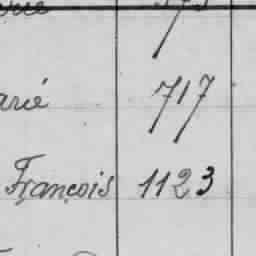 arié 717
François 1123